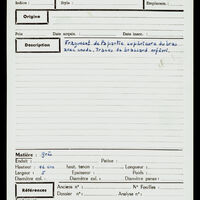 Indice : Style : Emplacem. :
Origine
Prix Date acquis. Date inscr. :
Description Fragment de la partie supérieure du bras
avec coude. Traces de brassard
Matière : grès
Enduit : Patine :
Hauteur : 16 cm haut. tenon : Longueur :
Largeur : 5 Epaisseur : Poids :
Diamètre col. : Diamètre col. : Diamètre panse :
Références Anciens n° : N° Fouilles :
Dossier n° : Analyse n° :